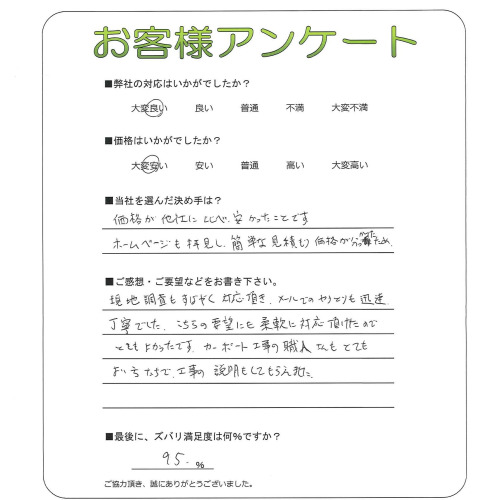 お客様アンケート
■弊社の対応はいかがでしたか？
大変良い 良い 普通 不満 大変不満
■価格はいかがでしたか？
大変安い 安い 普通 高い 大変高い
■当社を選んだ決め手は？
価格が他社に比べ、安かったことです
ホームページも拝見し、簡単な見積もり価格が分かったため
■ご感想・ご要望などをお書き下さい。
現地調査もすばやく対応頂き、メールでのやりとりも迅速
丁寧でした。こちらの要望にも柔軟に対応頂けたので
とてもよかったです。カーポート工事の職人さんもとても
よい方たちで、工事の説明もしてもらえました
■最後に、ズバリ満足度は何％ですか？
95. %
ご協力頂き、誠にありがとうございました。